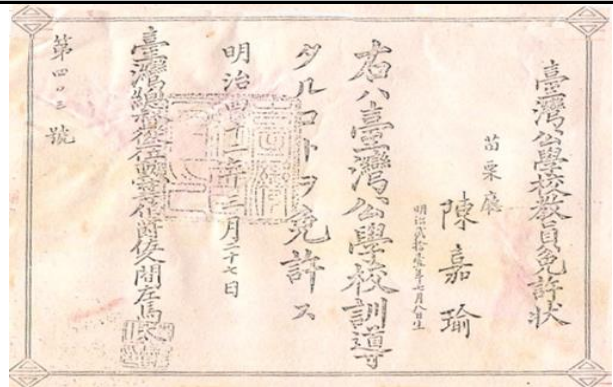 臺灣公學校教員免許狀
苗栗廳
陳嘉瑜
明治貳拾壹年七月八日生
右ハ臺灣公學校訓導
タルコトヲ免許ス
明治四十二年三月二十七日
臺灣總督從二位勳一等伯爵佐久間左馬太
第四〇三號